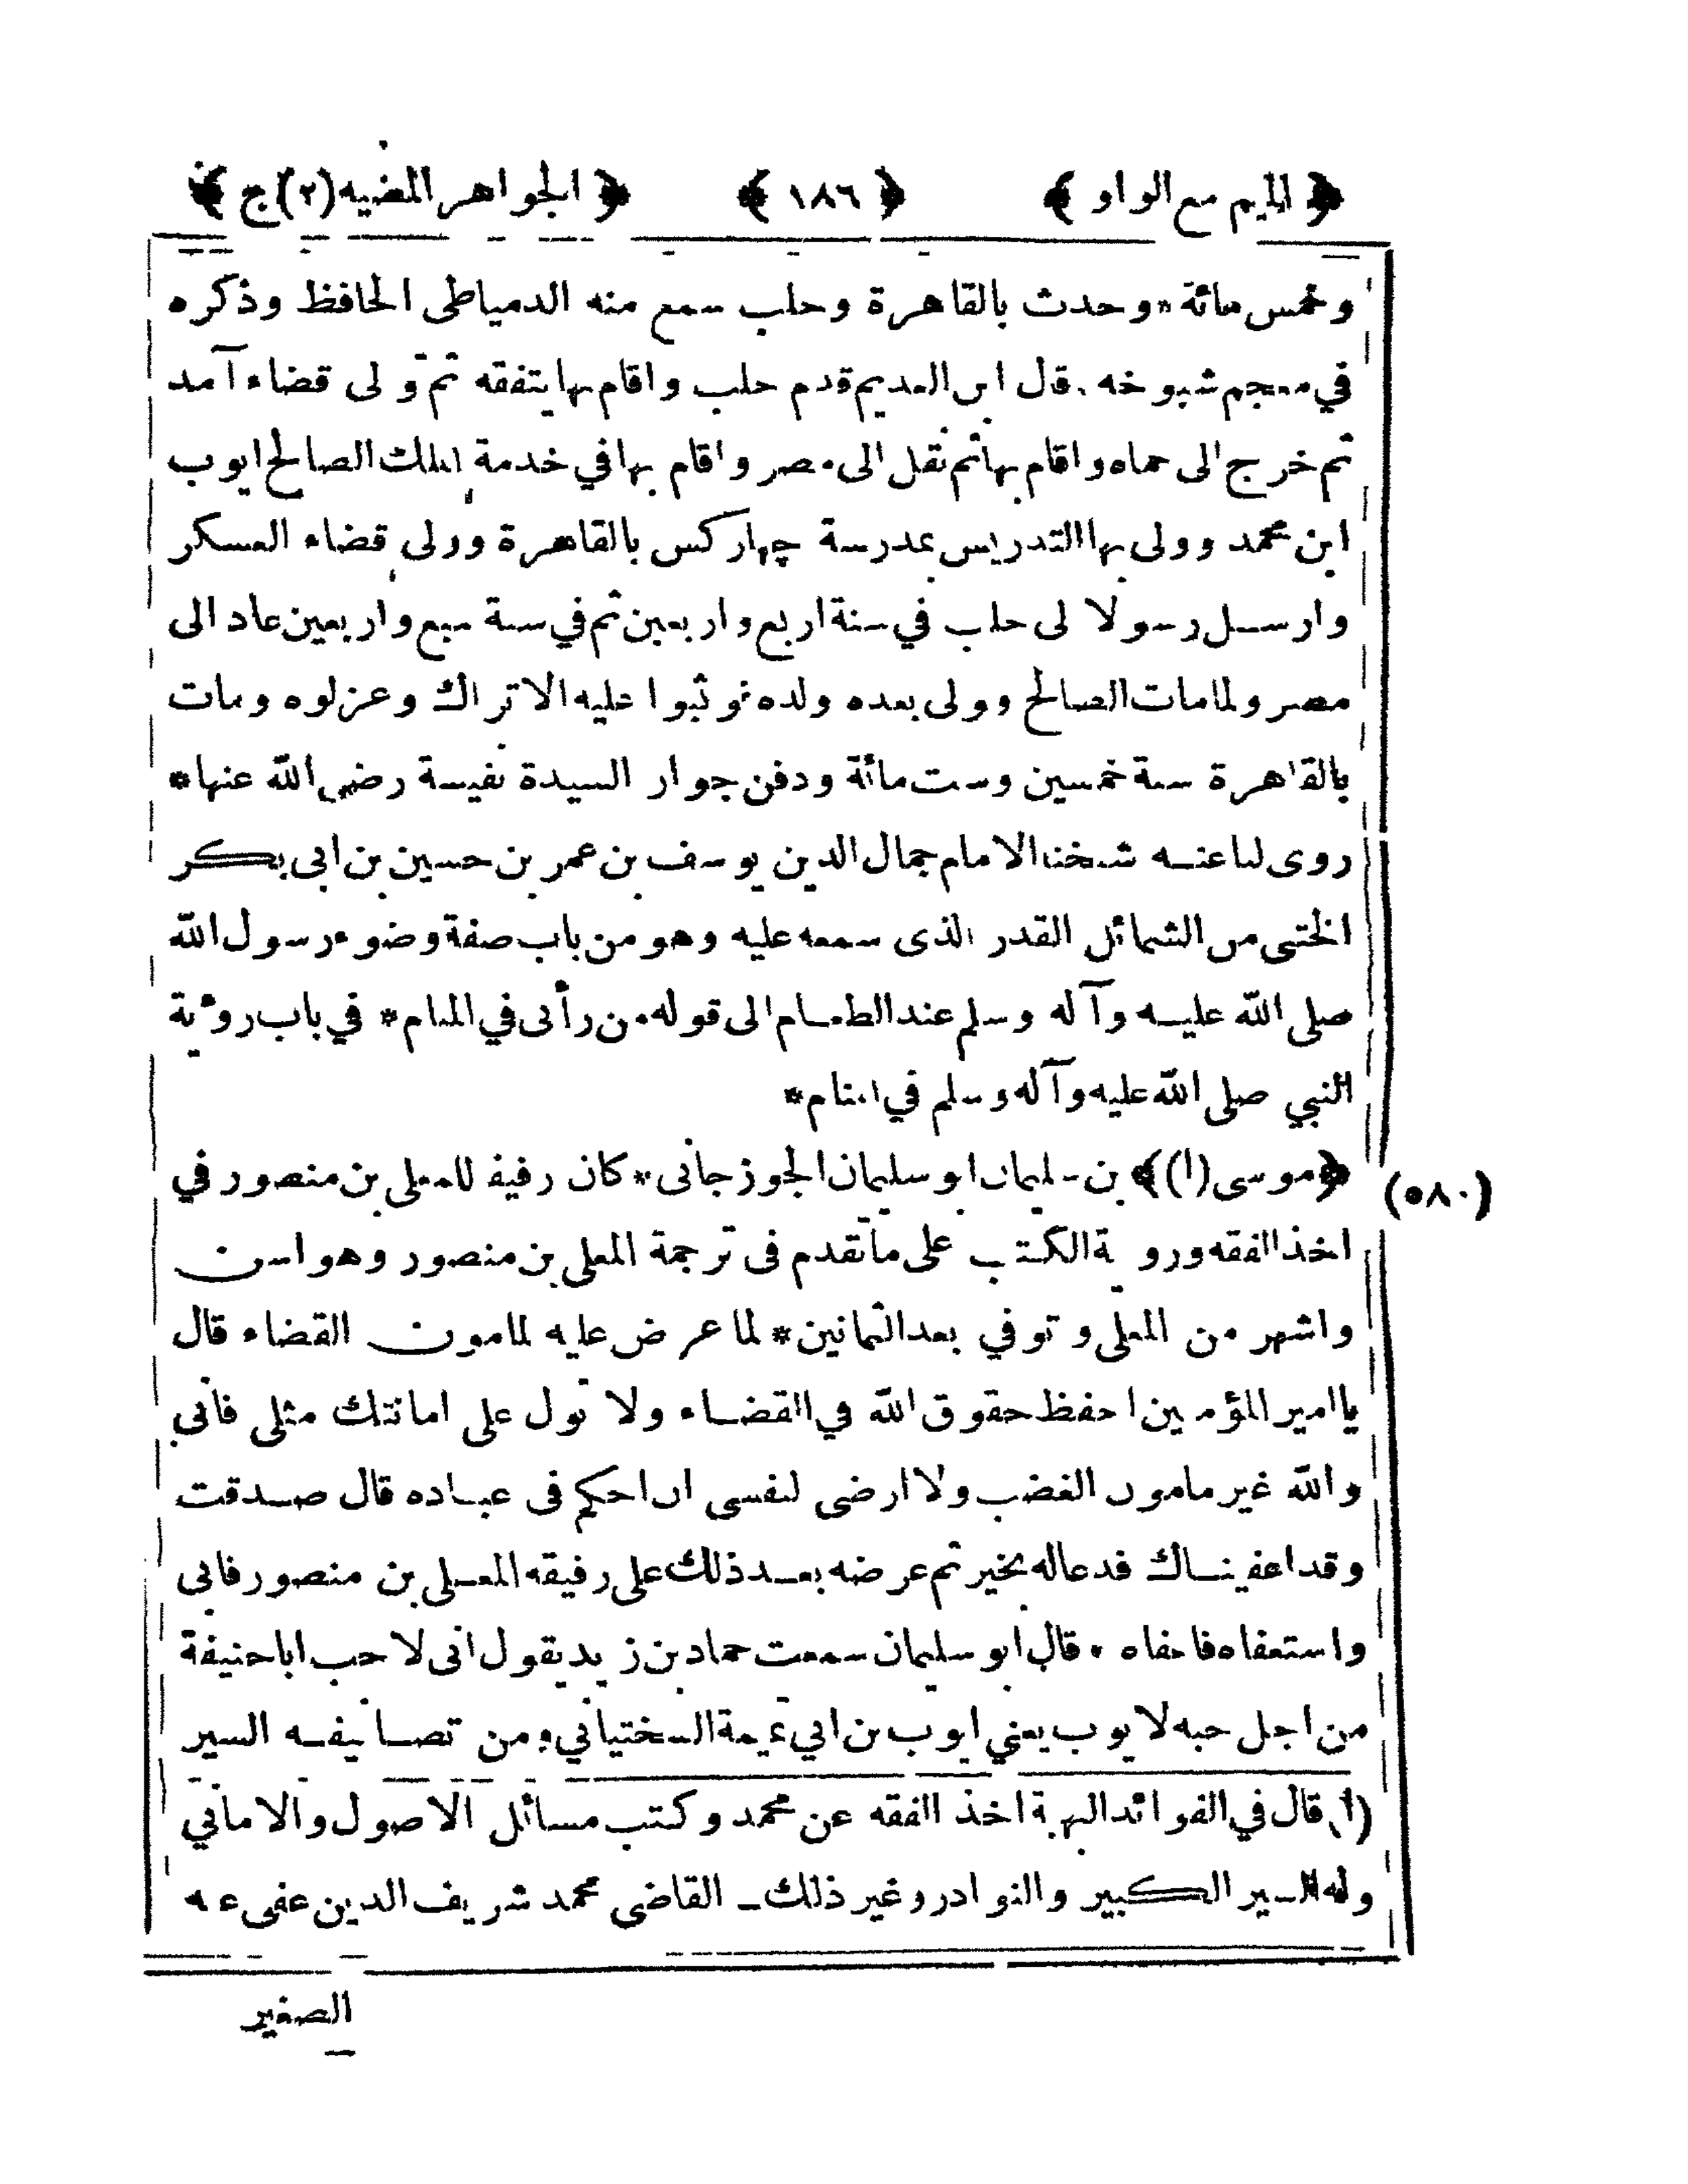 ﴿ الميم مع الواو ﴾ ﴿ ١٨٦ ﴾ ﴿ الجواهر المضيه (٢) ج ﴾
وخمس مائة * وحدث بالقاهرة وحلب سمع منه الدمياطى الحافظ وذكره
في معجم شيوخه . قال ابن العديم قدم حلب واقام بها يتفقه ثم تولى قضاء آمد
ثم خرج الى حماه واقام بها ثم نقل الى مصر واقام بها في خدمة الملك الصالح ايوب
ابن محمد وولى بها التدريس بمدرسة چهاركس بالقاهرة وولى قضاء العسكر
وارسل رسولا الى حلب في سنة اربع واربعين ثم في سنة سبع واربعين عاد الى
مصر ولما مات الصالح وولى بعده ولده توثبوا عليه الاتراك وعزلوه ومات
بالقاهرة سنة خمسين وست مائة ودفن جوار السيدة نفيسة رضى الله عنها *
روى لنا عنه شيخنا الامام جمال الدين يوسف بن عمر بن حسين بن ابى بكر
الختنى من الشمائل القدر الذى سمعه عليه وهو من باب صفة وضوء رسول الله
صلى الله عليه وآله وسلم عند الطعام الى قوله من رأنى في المنام * في باب رؤية
النبي صلى الله عليه وآله وسلم في المنام *
﴿ موسى (١) ﴾ بن سليمان ابو سليمان الجوزجانى * كان رفيقا للمعلى بن منصور في (٥٨٠)
اخذ الفقه ورواية الكتب على ما تقدم فى ترجمة المعلى بن منصور وهو اسن
واشهر من المعلى وتوفي بعد الثمانين * لما عرض عليه المامون القضاء قال
يا امير المؤمنين احفظ حقوق الله في القضاء ولا تول على امانتك مثلى فانى
والله غير مامون الغضب ولا ارضى لنفسى ان احكم فى عباده قال صدقت
وقد اعفيناك فدعا له بخير ثم عرضه بعد ذلك على رفيقه المعلى بن منصور فابى
واستعفاه فاعفاه . قال ابو سليمان سمعت حماد بن زيد يقول انى لاحب اباحنيفة
من اجل حبه لايوب يعني ايوب بن ابي تميمة السختياني ومن تصانيفه السير
(١) قال في الفوائد البهية اخذ الفقه عن محمد وكتب مسائل الاصول والامالي
وله السير الكبير والنوادر وغير ذلك ـ القاضى محمد شريف الدين عفى عنه
الصغير